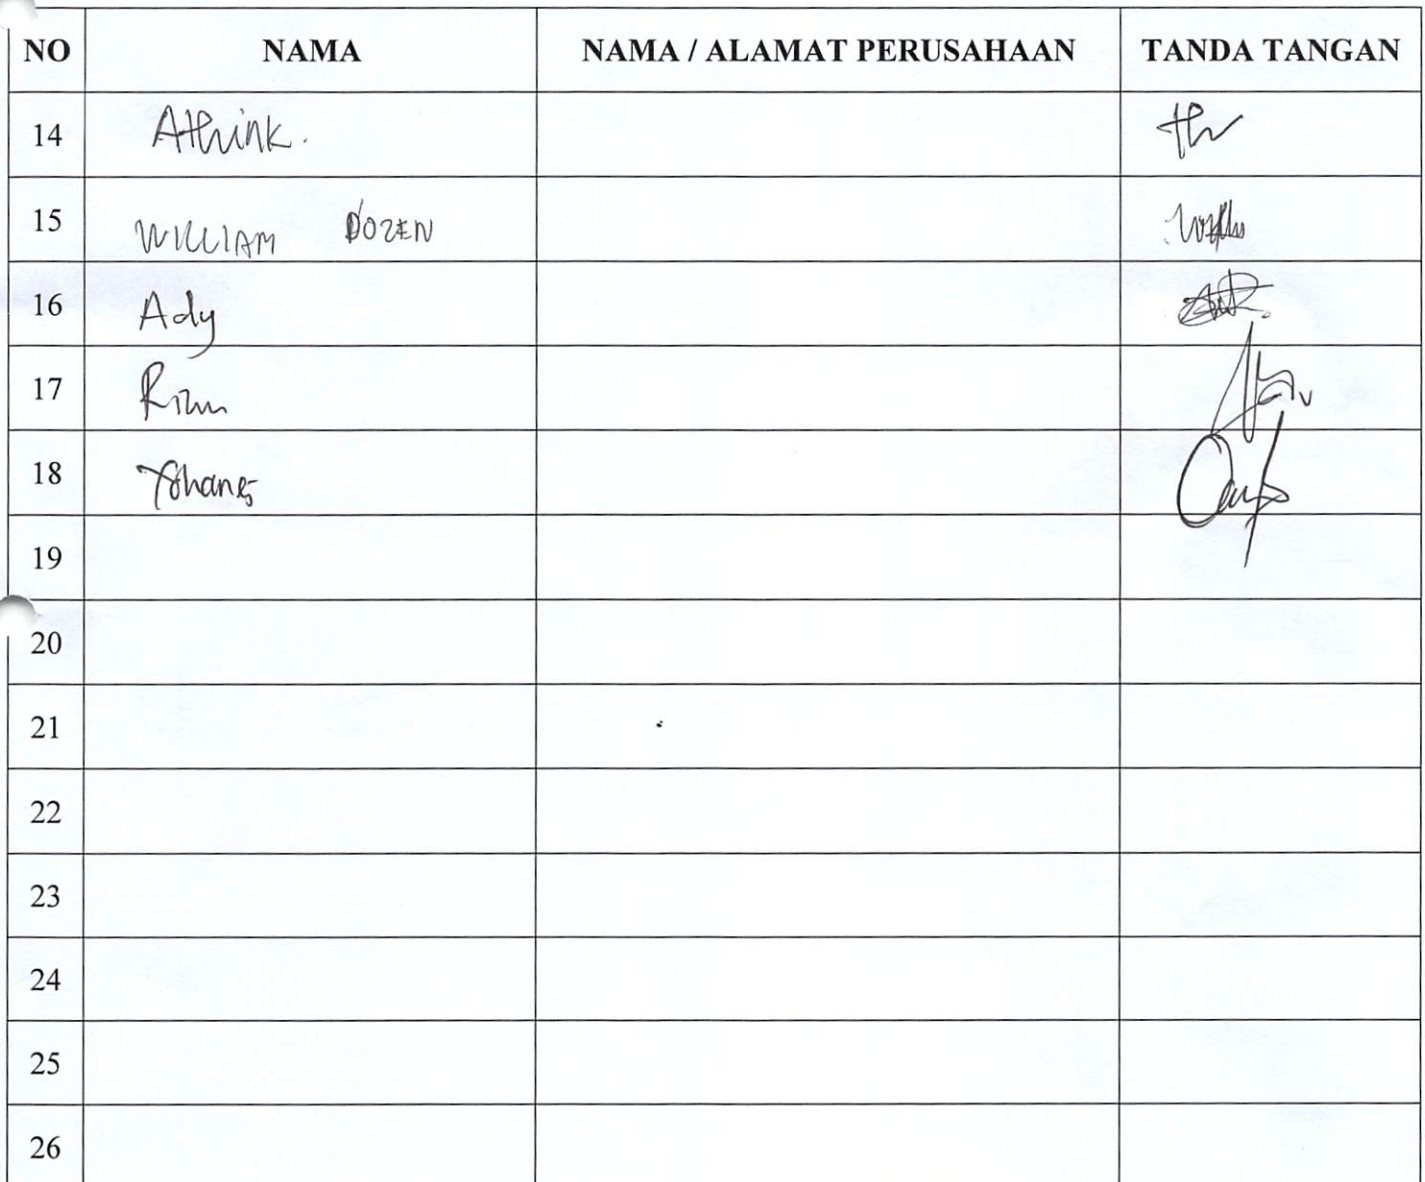 NO NAMA NAMA / ALAMAT PERUSAHAAN TANDA TANGAN
14 Athink.
15 WILLIAM DOZEN
16 Ady
17
18
19
20
21
22
23
24
25
26